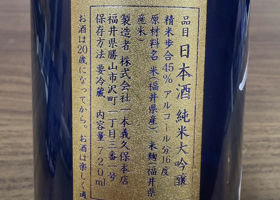 品目 日本酒 純米大吟醸
精米歩合45% アルコール分16度
原材料名 米(福井県産)、米麹(福井県
産米)
製造者 株式会社 一本義久保本店
福井県勝山市沢町一丁目三番一号
保存方法 要冷蔵 内容量 720ml
お酒は20歳になってから。お酒は楽しく適